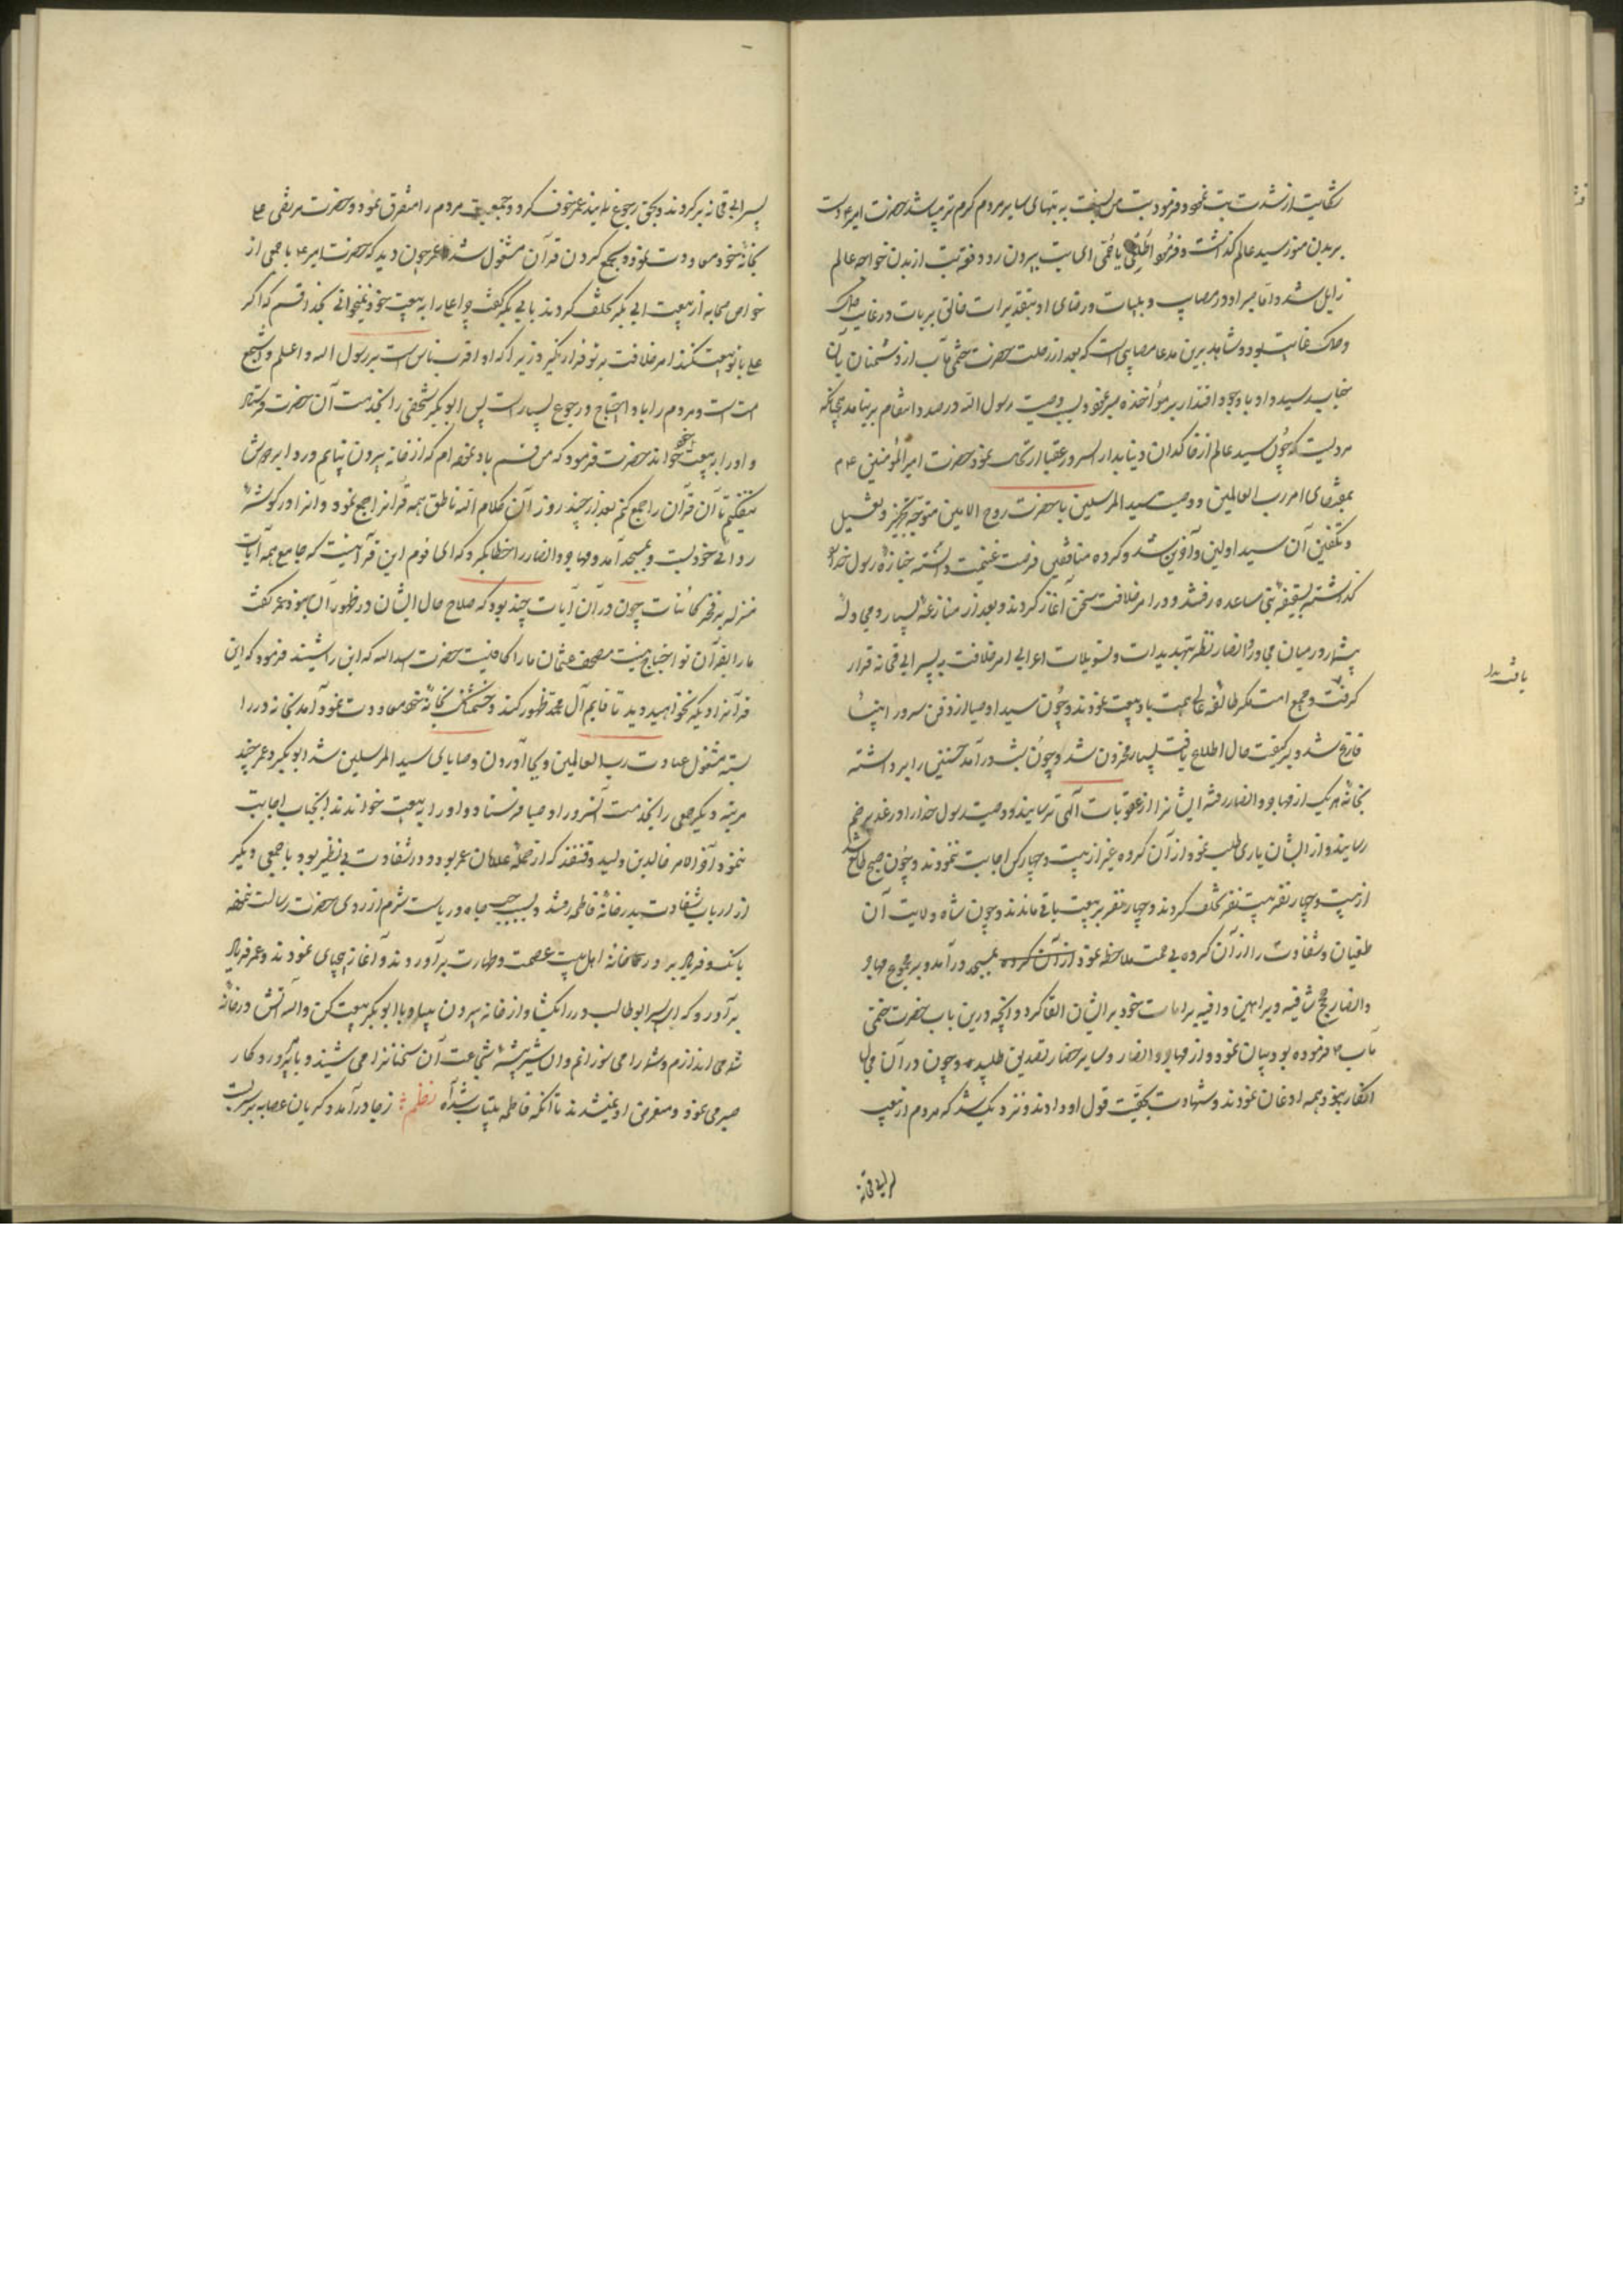 شکایت از شدت تب نموده فرمود تب من نسبت به تبهای سایر مردم کرم تر میباشد حضرت امیر ع دست
بر بدن منور سید عالم کذاشت و فرمود اطلقی یا حُمّی ای تب بیرون رو دفعه تب از بدن خواجه عالم
زایل شد و اما صبر او در مصایب و بلیات و رضای او بتقدیرات خالق بریات در غایت
و غایت بود و شاهد برین مدعا مصایبی است که بعد از رحلت حضرت ختمی مآب از دشمنان بآن
جناب رسید و او با وجود اقتدار بر مؤاخذه صبر نمود و بسبب وصیت رسول الله در صدد انتقام بر نیامد چنانکه
مرویست که چون سید عالم از خاکدان دنیا بدار السرور عقبا ارتحال نمود حضرت امیر المؤمنین ع
بمقتضای امر رب العالمین و وصیت سید المرسلین با حضرت روح الامین متوجه تجهیز و تغسیل
و تکفین آن سید اولین و آخرین شد و کروه منافقین فرصت غنیمت دانسته جنازه رسول خدا را
کذاشته بسقیفه بنی ساعده رفتند و در امر خلافت سخن آغاز کردند و بعد از منازعه بسیار و مجادله
بیشمار در میان مهاجر و انصار نظر بتهدیدات و تسویلات اعرابی امر خلافت به پسر ابی قحافه قرار
کرفت و جمع امت مکر طایفه عالی همت باو بیعت نمودند و چون سید اوصیا از دفن سرور انبیا
فارغ شد و بر کیفیت حال اطلاع یافت بسیار محزون شد و چون شب در آمد حسنین را برداشته
بخانه هر یک از مهاجر و انصار رفته ایشانرا از عقوبات الهی ترسانید و وصیت رسول خدا را در غدیر خم
رسانید و از ایشان یاری طلب نمود از آن کروه غیر از بیست و چهار کس اجابت ننمودند و چون صبح طالع شد
از بیست و چهار نفر بیست نفر تخلف کردند و چهار نفر بر بیعت باقی ماندند و چون شاه ولایت آن
طغیان و شقاوت را از آن کروه بی حمیت ملاحظه نمود از آن کروه بمسجد در آمد و بر مجموع مهاجر
و انصار حجج شافیه و براهین وافیه بر امامت خود بر ایشان القا کرد و آنچه درین باب حضرت ختمی
مآب فرموده بود بیان نمود و از مهاجر و انصار و سایر حضار تصدیق طلبید و چون در آن مجال
انکار نبود همه اذعان نمودند و شهادت بحقیت قول او دادند و نزدیک شد که مردم از تعب
پسر ابی قحافه
یافت بدا
پسر ابی قحافه بر کردند و بحق رجوع نمایند عمر خوف کرد و جمعیت مردم را متفرق نمود و حضرت مرتضی علی
بخانه خود معاودت نموده بجمع کردن قرآن مشغول شد عمر چون دید که حضرت امیر ع با جمعی از
خواص صحابه از بیعت ابی بکر تخلف کردند بابی بکر کفت چرا علی را به بیعت خود نمیخوانی بخدا قسم که اکر
علی با تو بیعت نکند امر خلافت بر تو قرار نکیرد زیرا که او اقرب ناس است برسول الله و اعلم و اشجع
امت است و مردم را باو احتیاج و رجوع بسیار است پس ابو بکر شخصی را بخدمت آن حضرت فرستاد
و او را به بیعت خود خواند حضرت فرمود که من قسم یاد نموده ام که از خانه بیرون نیایم و ردا بر دوش
نیفکنم تا آن قرآن را جمع کنم بعد از چند روز آن کلام الله ناطق همه قرآنرا جمع نمود و آنرا در کوشه
ردای خود بست و بمسجد آمد و مهاجر و انصار را خطاب کرد که ای قوم این قرآنیست که جامع همه آیات
منزله بر فخر کائنات چون در آن آیات چند بود که صلاح حال ایشان در ظهور آن نبود عمر کفت
ما را بقرآن تو احتیاج نیست مصحف عثمان ما را کافیست حضرت اسد الله که این را شنید فرمود که این
قرآنرا دیکر نخواهید دید تا قایم آل محمد ظهور کند و خشمناک بخانه خود معاودت نمود و آمد بخانه در را
بسته مشغول عبادت رب العالمین و بجا آوردن وصایای سید المرسلین شد ابو بکر و عمر چند
مرتبه دیکر جمعی را بخدمت آن سرور اوصیا فرستاد و او را به بیعت خواندند آنجناب اجابت
ننمود آخر الامر خالد بن ولید و قنفذ که از جمله غلامان عمر بود و در شقاوت بی نظیر بود با جمعی دیکر
از ارباب شقاوت بدر خانه فاطمه رفتند و بسبب حب جاه و ریاست شرم از روی حضرت رسالت نموده
بانک و فریاد بر در کاخانه اهل بیت عصمت و طهارت بر آوردند و آغاز بیحیایی نمودند و عمر فریاد
بر آورد که ای پسر ابو طالب در را بکشا و از خانه بیرون بیا و با ابو بکر بیعت کن و الا آتش در خانه
شما می اندازم و شما را می سوزانم و آن شیر بیشه شجاعت آن سخنانرا می شنید و بامر پروردکار
صبر می نمود و متعرض او نمیشدند تا آنکه فاطمه بیتاب شد آه نظم ز جا در آمد و کریان عصابه بر سر بست